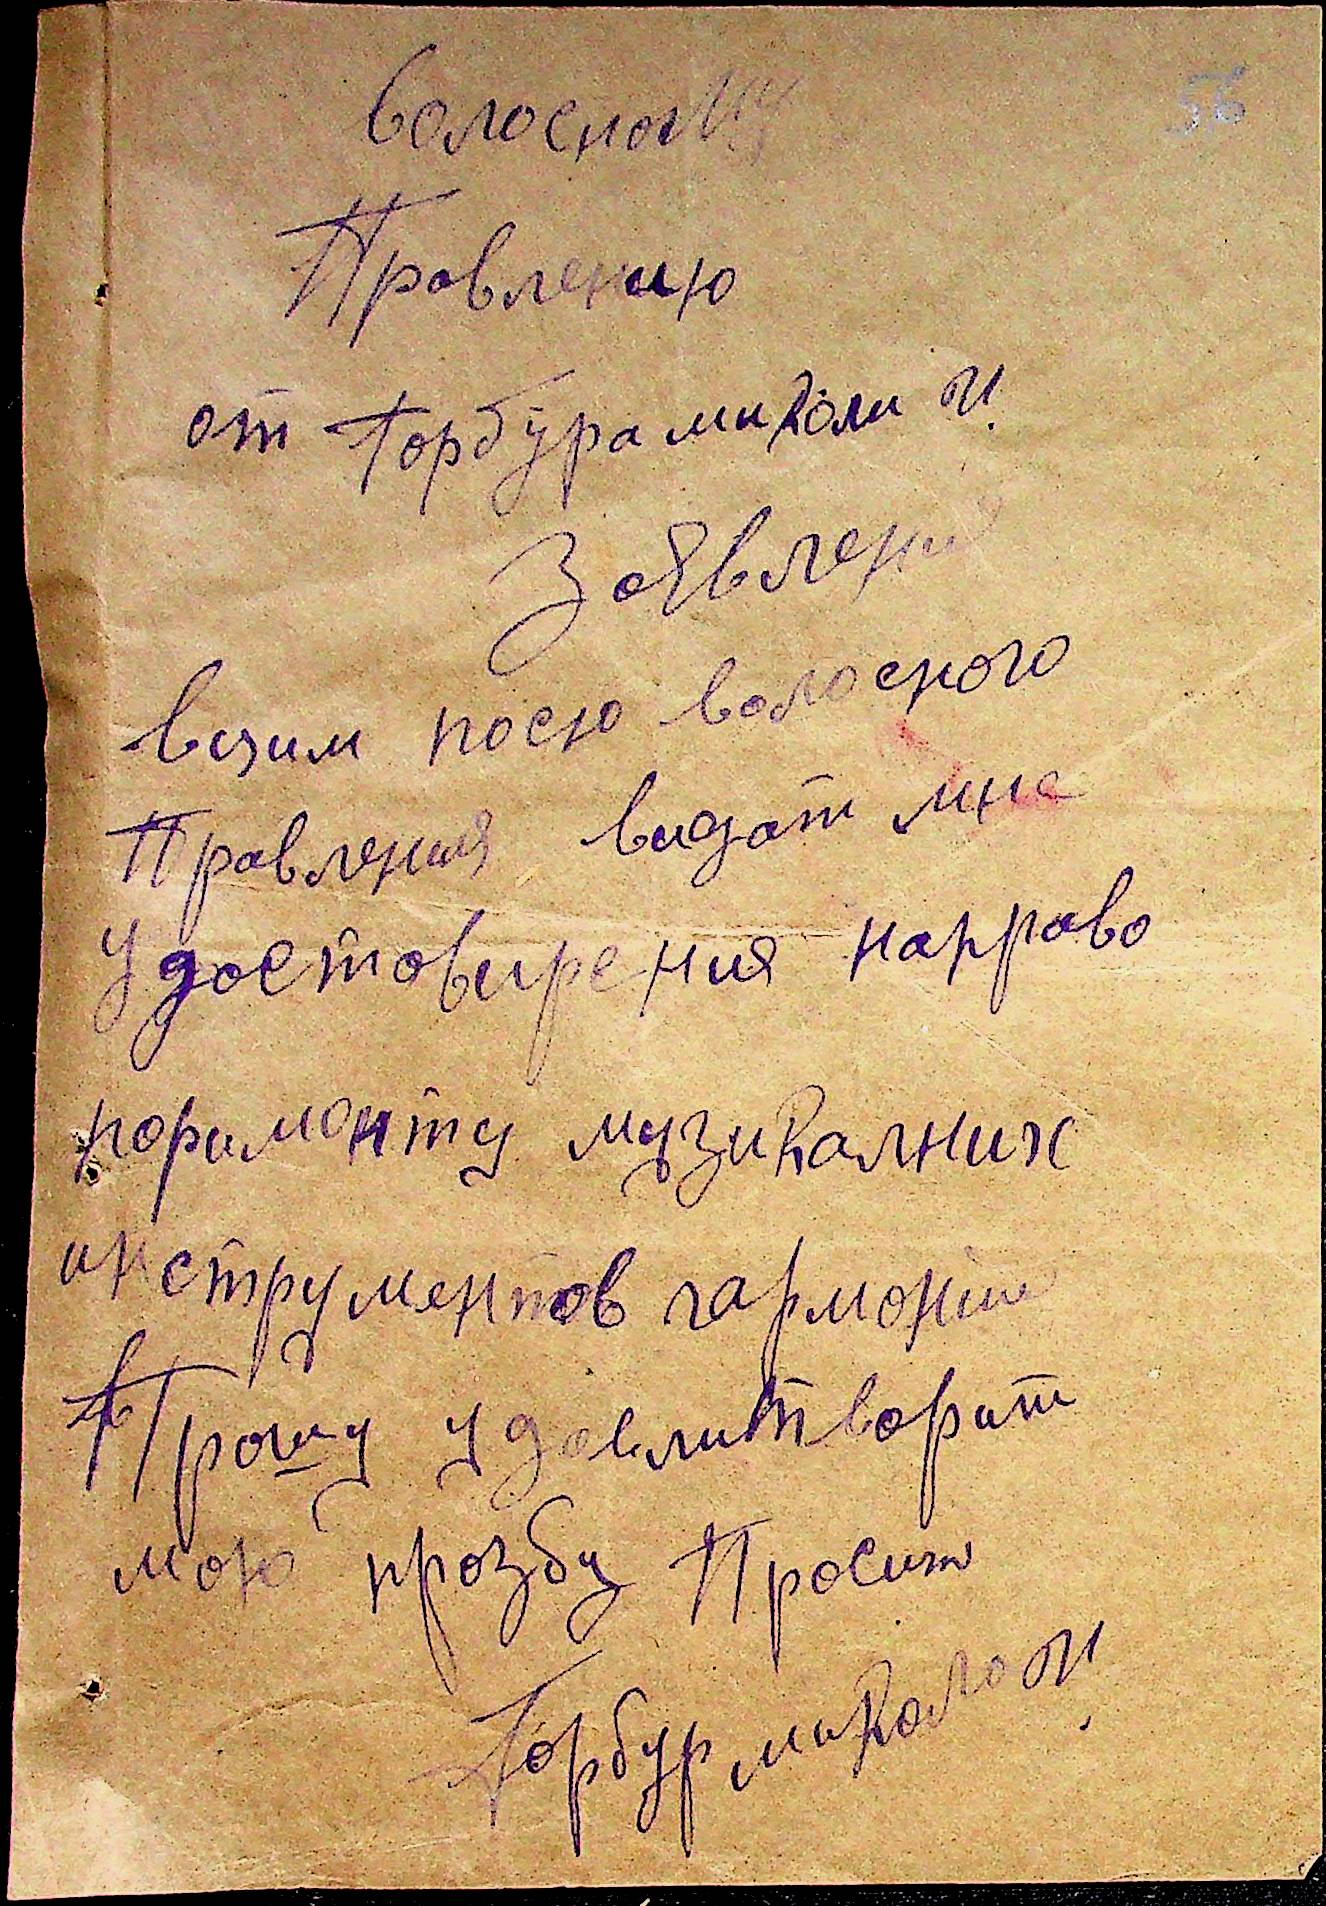 волосному
56
Правлению
от Горбура миколи И.
Заявление
вцим посю волосного
Правления видат мне
Удостовирения направо
поримонту музикалних
инструментов гармоние
Прошу удовлитворит
мою прозбу Просит
Горбур микола И.